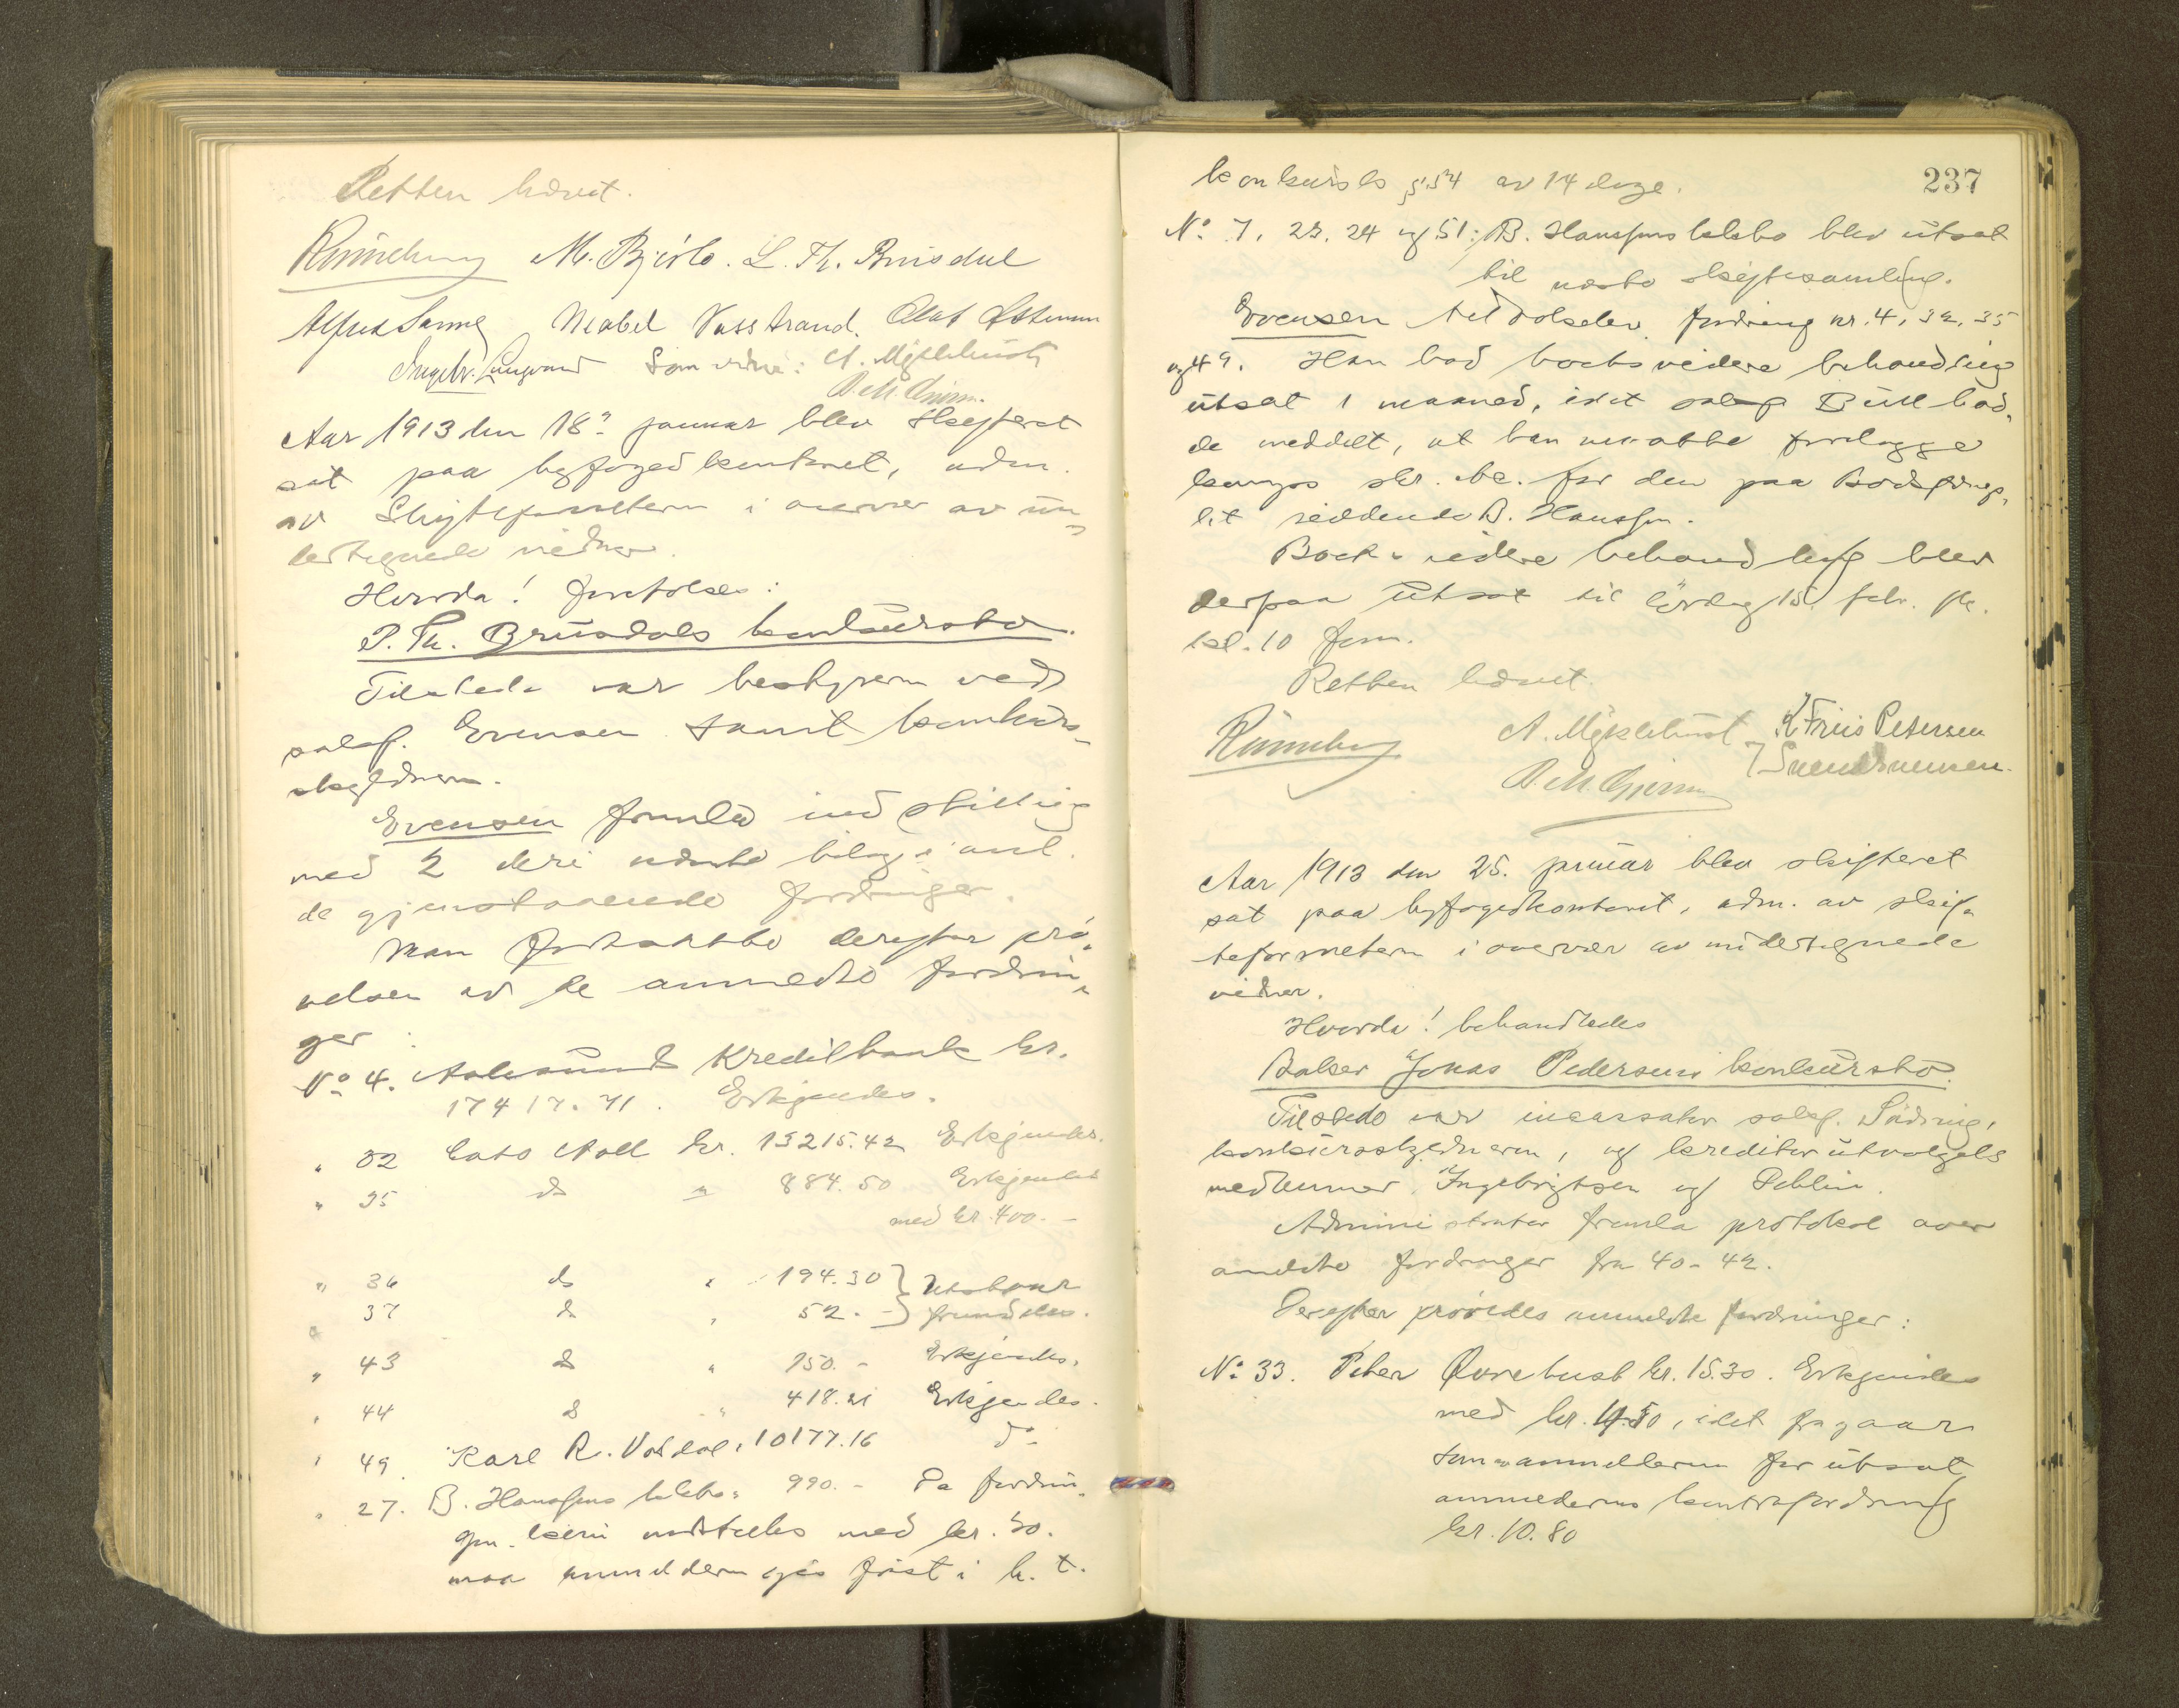 Retten hævet.
Rünneberg M. Bjørlo. L. Th. Brusdal
Alfred Sanne Mabel Vasstrand. Olaf
Ingebr. Langvand Som vidne: A. Myklebust
Aar 1913 den 18. januar blev skifteret
sat paa byfogedkontoret, adm.
av Skifteforvalteren i overvær av un-
dertegnede vidner.
Hvorda! foretokes:
P. Th. Brusdals konkursbo.
Tilstede var bestyreren ved
sakf. Evensen samt konkurs-
skyldneren.
Evensen fremla indstilling
med 2 deri nævnte bilag i anl.
de gjenstaaende fordringer.
Man fortsatte derefter prø-
velsen av de anmeldte fordrin-
ger
No 4. Aalesunds Kreditbank kr.
17417.71. Erkjendes.
" 32 Cato Aall kr. 13215.42 Erkjendes.
" 35 do " 884.50 Erkjendes
med kr. 400.-
" 36 do " 194.30 Utstaar
" 37 do " 52.- fremdeles.
" 43 do " 150.- Erkjendes.
" 44 do " 418.21 Erkjendes.
" 49. Karl R. Vatdal " 10177.16 do
" 27. B. Hanssens kkbo " 990.- Da fordrin-
gen kun indstilles med kr. 50.
maa anmelderen gis frist i h. t.
237
konkursl. § 54 av 14 dage.
No 7, 23, 24 og 51: B. Hanssens kkbo blev utsat
til næste skiftesamling.
Evensen fordring nr. 4, 32, 35
og 49. Han bad boets videre behandling
utsat 1 maaned, idet sakf. Bull had-
de meddelt, at han maatte forelægge
for den paa Bodsfengs-
let siddende B. Hanssen.
Boets videre behandling blev
derpaa utsat til lørdag 15. febr. ...
kl. 10 form.
Retten hævet.
Rünneberg A. Myklebust K Friis Petersen
Aar 1913 den 25. januar blev skifteret
sat paa byfogedkontoret, adm. av skif-
teforvalteren i overvær av undertegnede
vidner.
Hvorda! behandledes
Baker Jonas Pedersens konkursbo.
Tilstede var incassator sakf. Sødring,
konkursskyldneren, og kreditorutvalgets
medlemmer Ingebrigtsen og Dehlin.
Administrator fremla protokol over
anmeldte fordringer fra 40-42.
Derefter prøvedes anmeldte fordringer:
No 33. Peter Øvrebust kr. 15.30. Erkjendes
med kr. 4.50, idet fragaar
som anmelderen for utsat
anmelderens kontrafordring
kr. 10.80